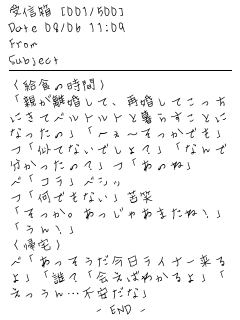 受信箱 [001/500]
Date 08/06 11:09
From
Subject
〈給食の時間〉
「親が離婚して、再婚してこっち
にきてベルトルトと暮らすことに
なったの」「へぇ～すっかでも」
つ「似てないでしょ？」「なんで
分かったの？」つ「あのね」
べ「コラ」ペシッ
つ「何でもない」苦笑
「そっか。あっじゃあまたね！」
「うん！」
〈帰宅〉
べ「あっそうだ今日ライナー来る
よ」「誰？「会えばわかるよ」「
えっうん…不安だな」
- END -